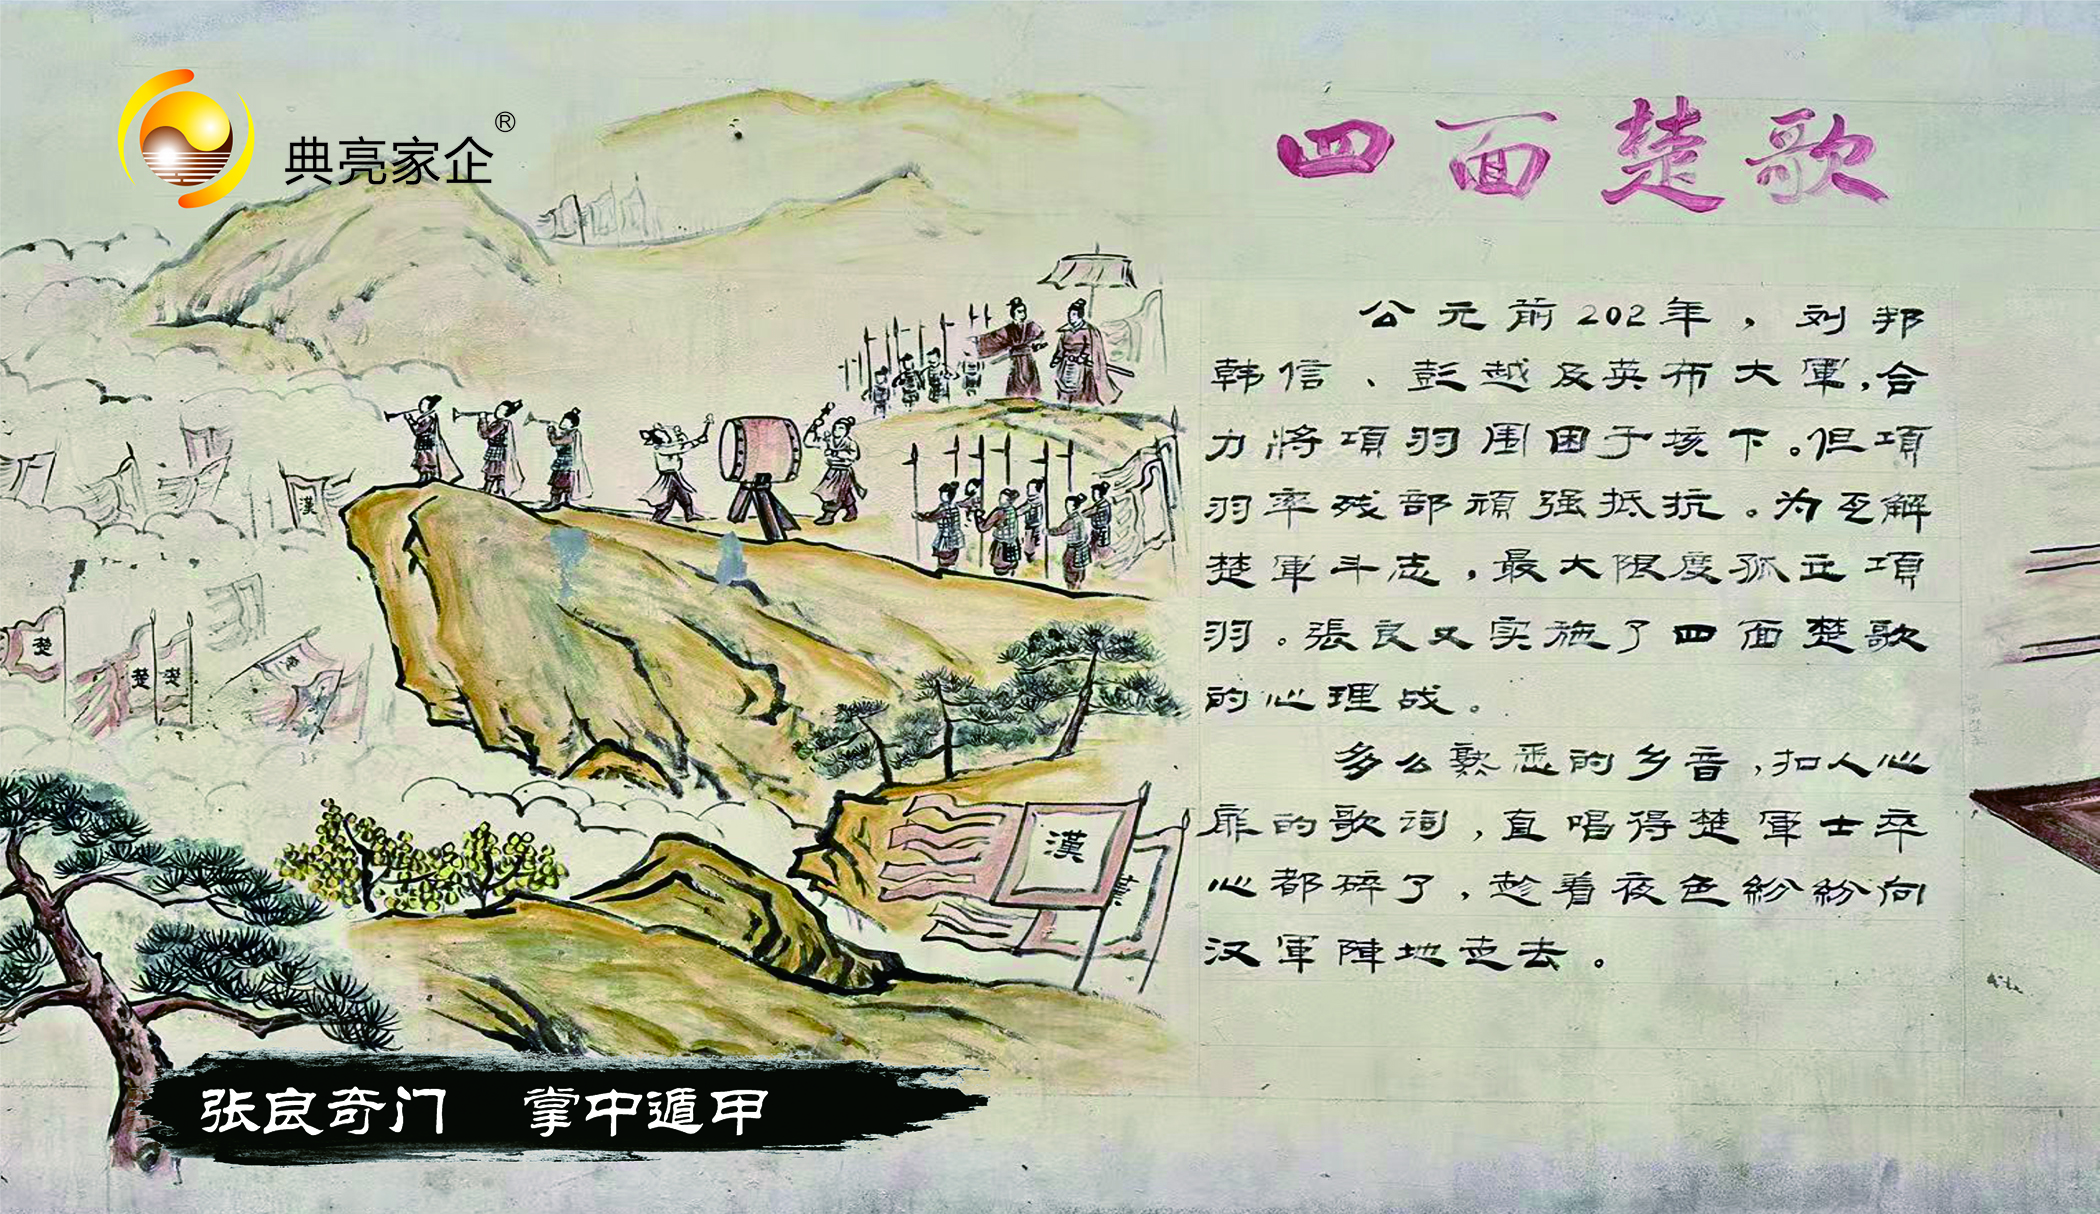 典亮家企®
四面楚歌
公元前202年，刘邦
韩信、彭越及英布大軍，合
力將項羽围困于垓下。但項
羽率残部頑强抵抗。为瓦解
楚軍斗志，最大限度孤立項
羽。張良又实施了四面楚歌
的心理战。
多么熟悉的乡音，扣人心
扉的歌词，直唱得楚軍士卒
心都碎了，趁着夜色紛紛向
汉軍陣地走去。
漢
楚
楚
楚
漢
張良奇门 掌中遁甲